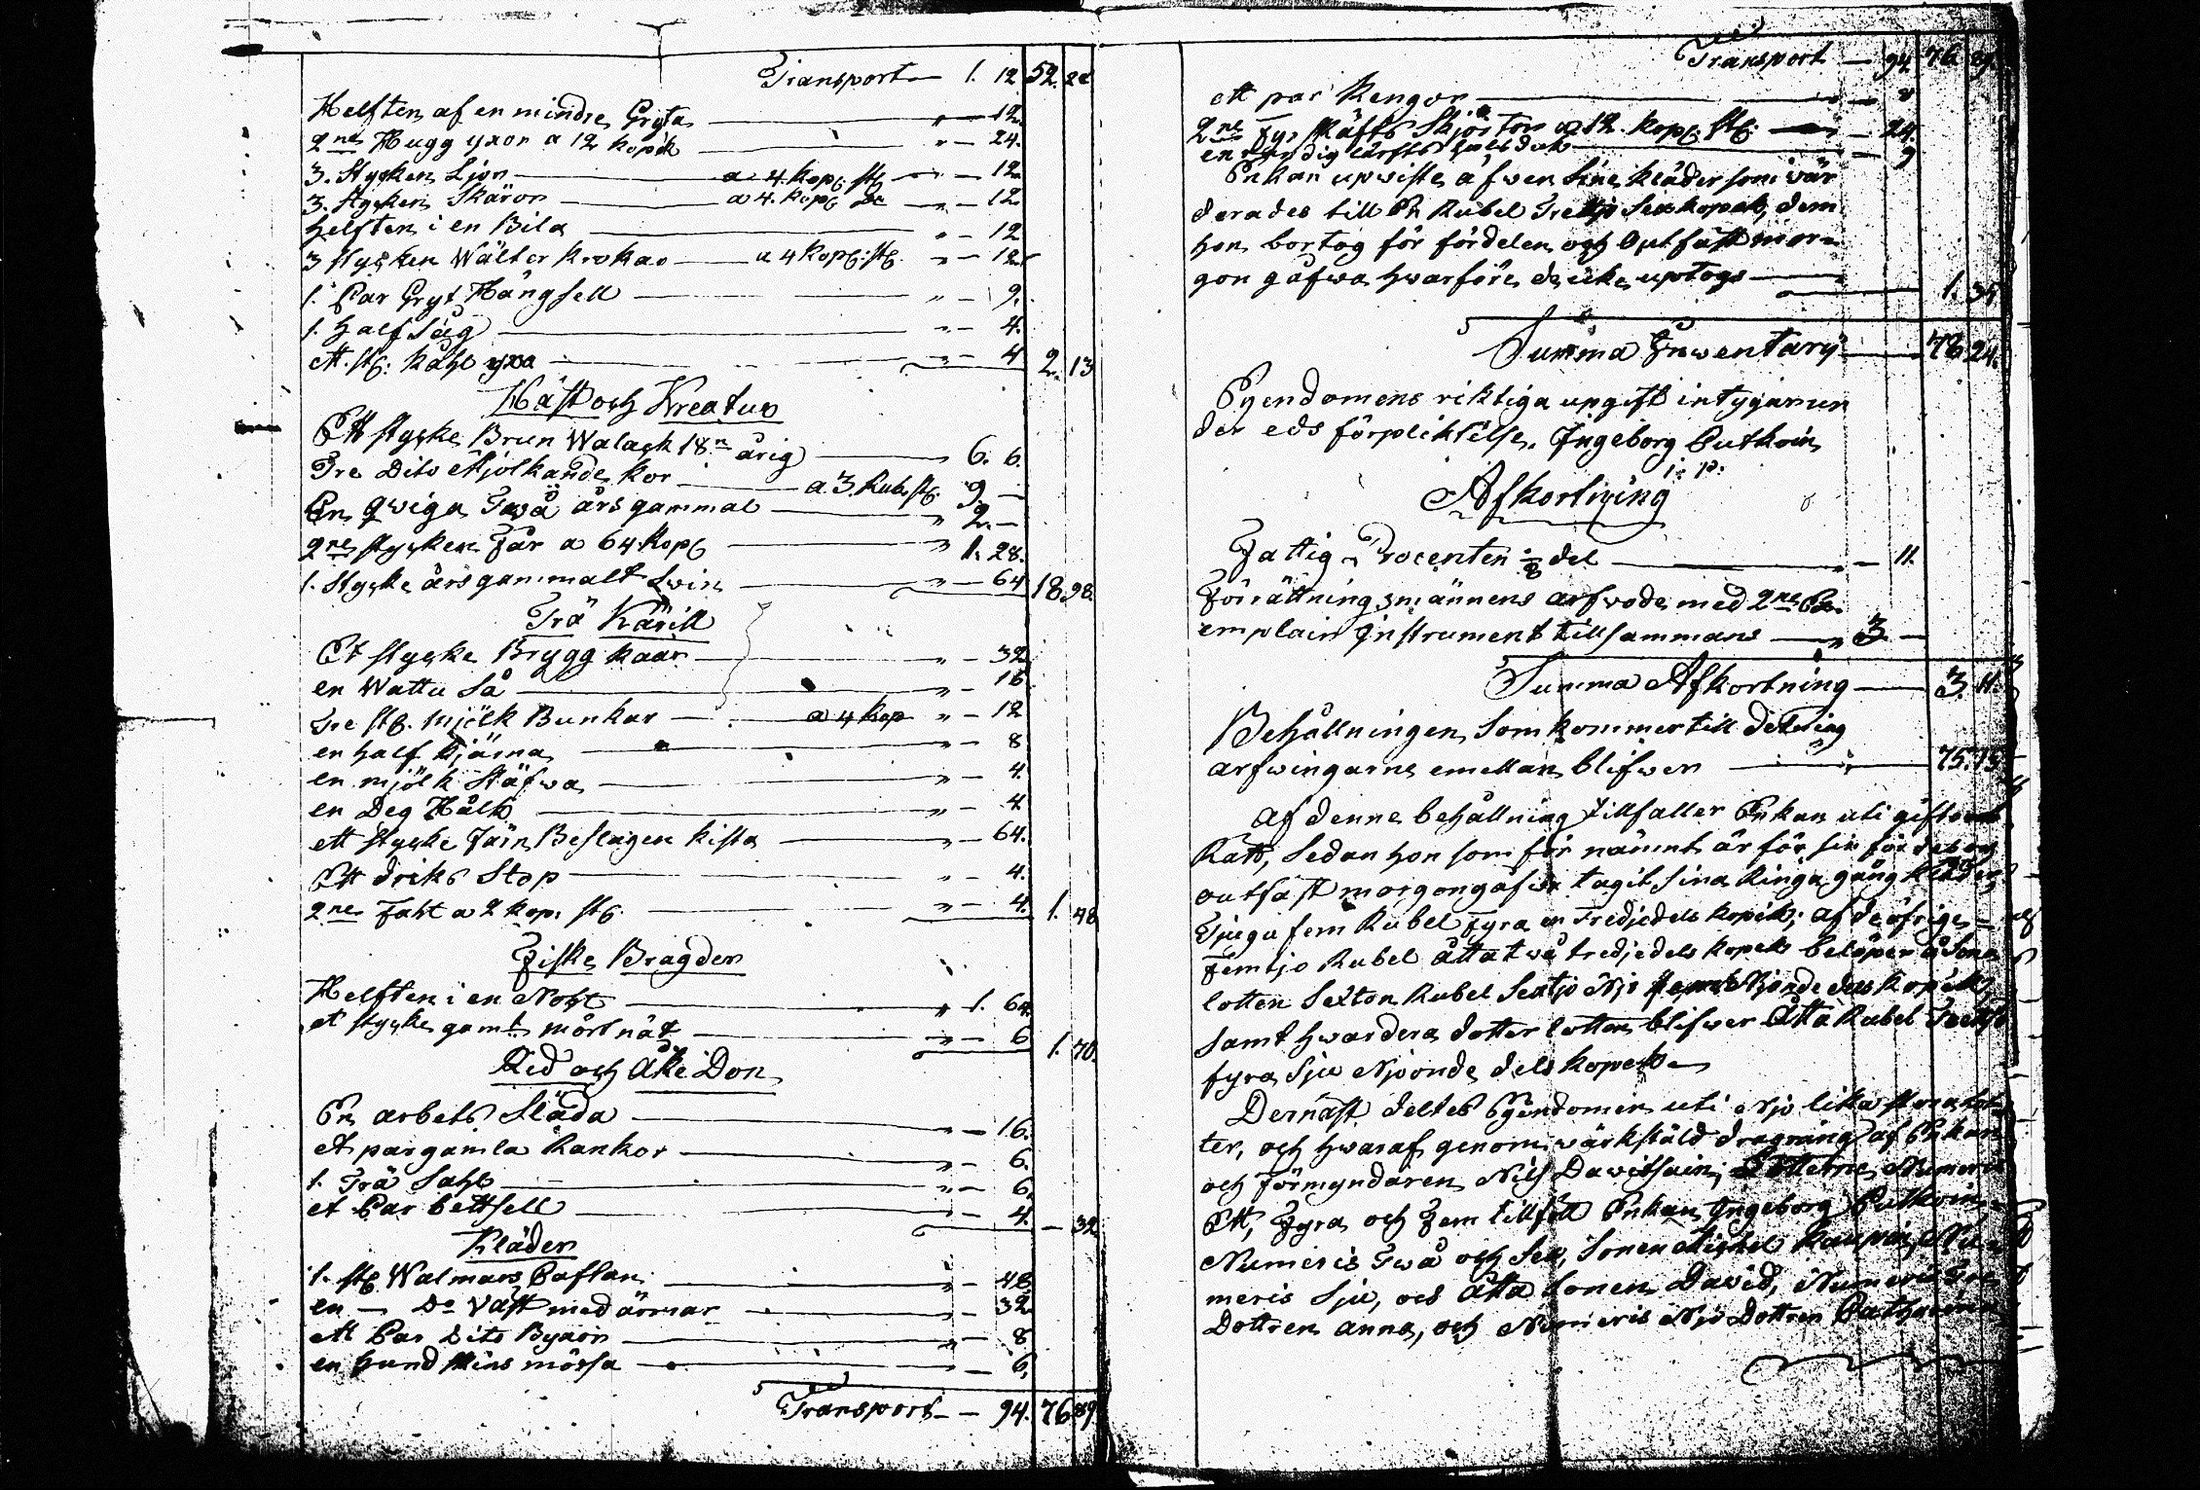 Transport — 1. 12 52. 22
Helften af en mindre Gryta — " — 12.
2ne Hugg yxor a 12 kopek — " — 24.
3. Stycken Ljor — a 4. kop: st: — " — 12.
3. stycken Skäror — a 4. kop: — " — 12.
helften i en Bila — " — 12
3 stycken Wälter krokar — a 4 kop: st: " — 12
1. Par Gryt Hängsell — " — 9.
1. half Såg — " — 4.
ett. st: kåhl yxa — " — 4 2. 13
Häst och Kreatur
Ett stycke Brun Walack 18.n årig — 6. 6.
Tre Dito Mjölkande kor — a 3. Rub. st: 9. —
En qwiga Twå års gammal — " 2. —
2ne stycken Får a 64. kop: — " 1. 28.
1. stycke års gammalt Swin — " — 64 18. 98.
Trä Kärill
Et stycke Brygg kaar — " — 32
en Wattu Så — " — 16
Tre st: mjölk Bunkar — a 4 kop " — 12
en half kjärna — " — 8
en mjölk Stäfwa — " — 4.
en Deg Hålk — " — 4.
ett stycke Järn Beslagen kista — " — 64.
Ett driks Stop — " — 4.
2ne Faht a 2 kop: st: — " — 4. 1. 48
Fiske Bragder
Helften i en Noht — " 1. 64
et stycke gamt mört nät — " — 6 1. 70.
Rid och Åke Don
En arbets Släda — " — 16.
et par gamla Rankor — " — 6.
1. Trä Sahl — " — 6.
et Par bettsell — " — 4. — 32
Kläder
1. st: Walmars Caftan — " — 48
en — Do väst med ärmar — " — 32
ett Par Dito Byxor — " — 8
en hund skins mössa — " — 6.
Transport — 94. 76 89
Transport — 94 76 89.
ett par Kengor —
2ne Skjortor a 12. kop: st: — 24.
en — 9
Enkan upwiste äfwen Sine kläder som wär
derades till En Rubel Tretijo Sex kopek, dem
hon bortog för fördelen och Outfäst mor-
gon gåfwa hwarföre de icke uptogs —
1. 35
Summa Inwentary — 78 24.
Egendomens riktiga upgift intygar un
der eds förplicktelse. Ingeborg Putkoin
Afkortning
Fattig Procenten 1/8 del — " — 11.
Förrättningsmännens arfwode med 2ne Ex-
emplair Instrument tillsammans — " 3 —
Summa Afkortning — 3. 11.
Behållningen som kommer till delning
arfwingarne emellan blifwer — 75. 13
Af denne behållning tillfaller Enkan uti gifto
Rätt, Sedan hon som för nämnt är för sin fördel og
outfäst morgongåfwa tagit sina Ringa gång kläder,
Tjugu fem Rubel Fyra en Tredjedels kopek; af de öfrige
Femtjo Rubel Åtta twå tredjedels kopek belöper å Sone
lotten Sexton Rubel Sextjo Njo Njonde dels kopek,
samt hwardera dotter lotten blifwer Åtta Rubel Trettjo
fyra Sju Njonde dels kopek —
Dernäst deltes Egendomen uti Njo lika
ter, och hwaraf genom wärkstäld dragning af Enkan
och förmyndaren Nils Dawidsain, Numeris
Ett, Fyra och Fem tillföll Enkan Ingeborg Putkoin,
Numeris Twå och Sex, Sonen Michel Nu-
meris Sju, och Åtta Sonen David, Numeris Tre
Dottren Anna, och Numeris Njo Dottren Catharina